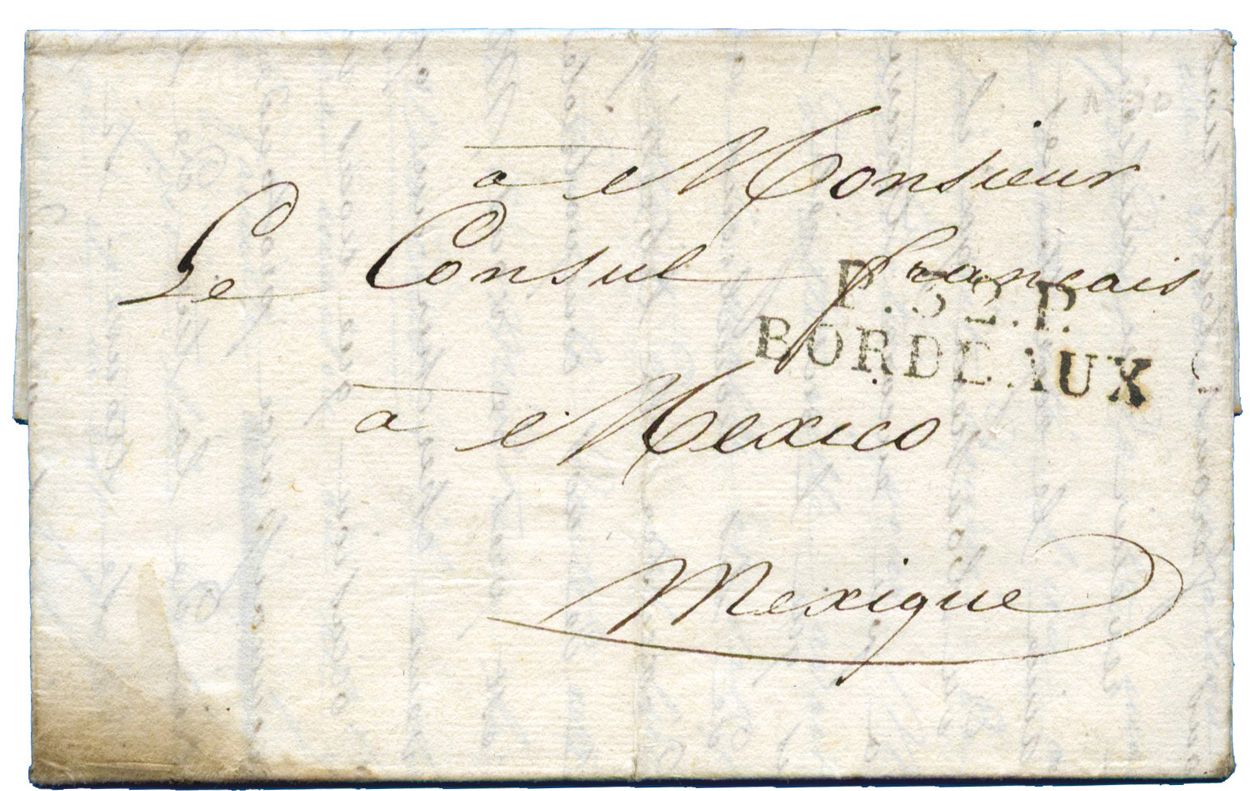 à Monsieur
Le Consul francais
P.32.P.
BORDEAUX
à Mexico
Mexique